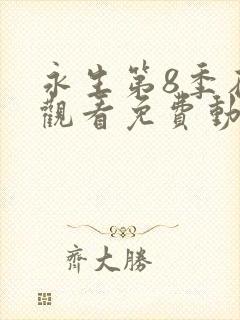 永生第8季
觀看免費動
齊大勝